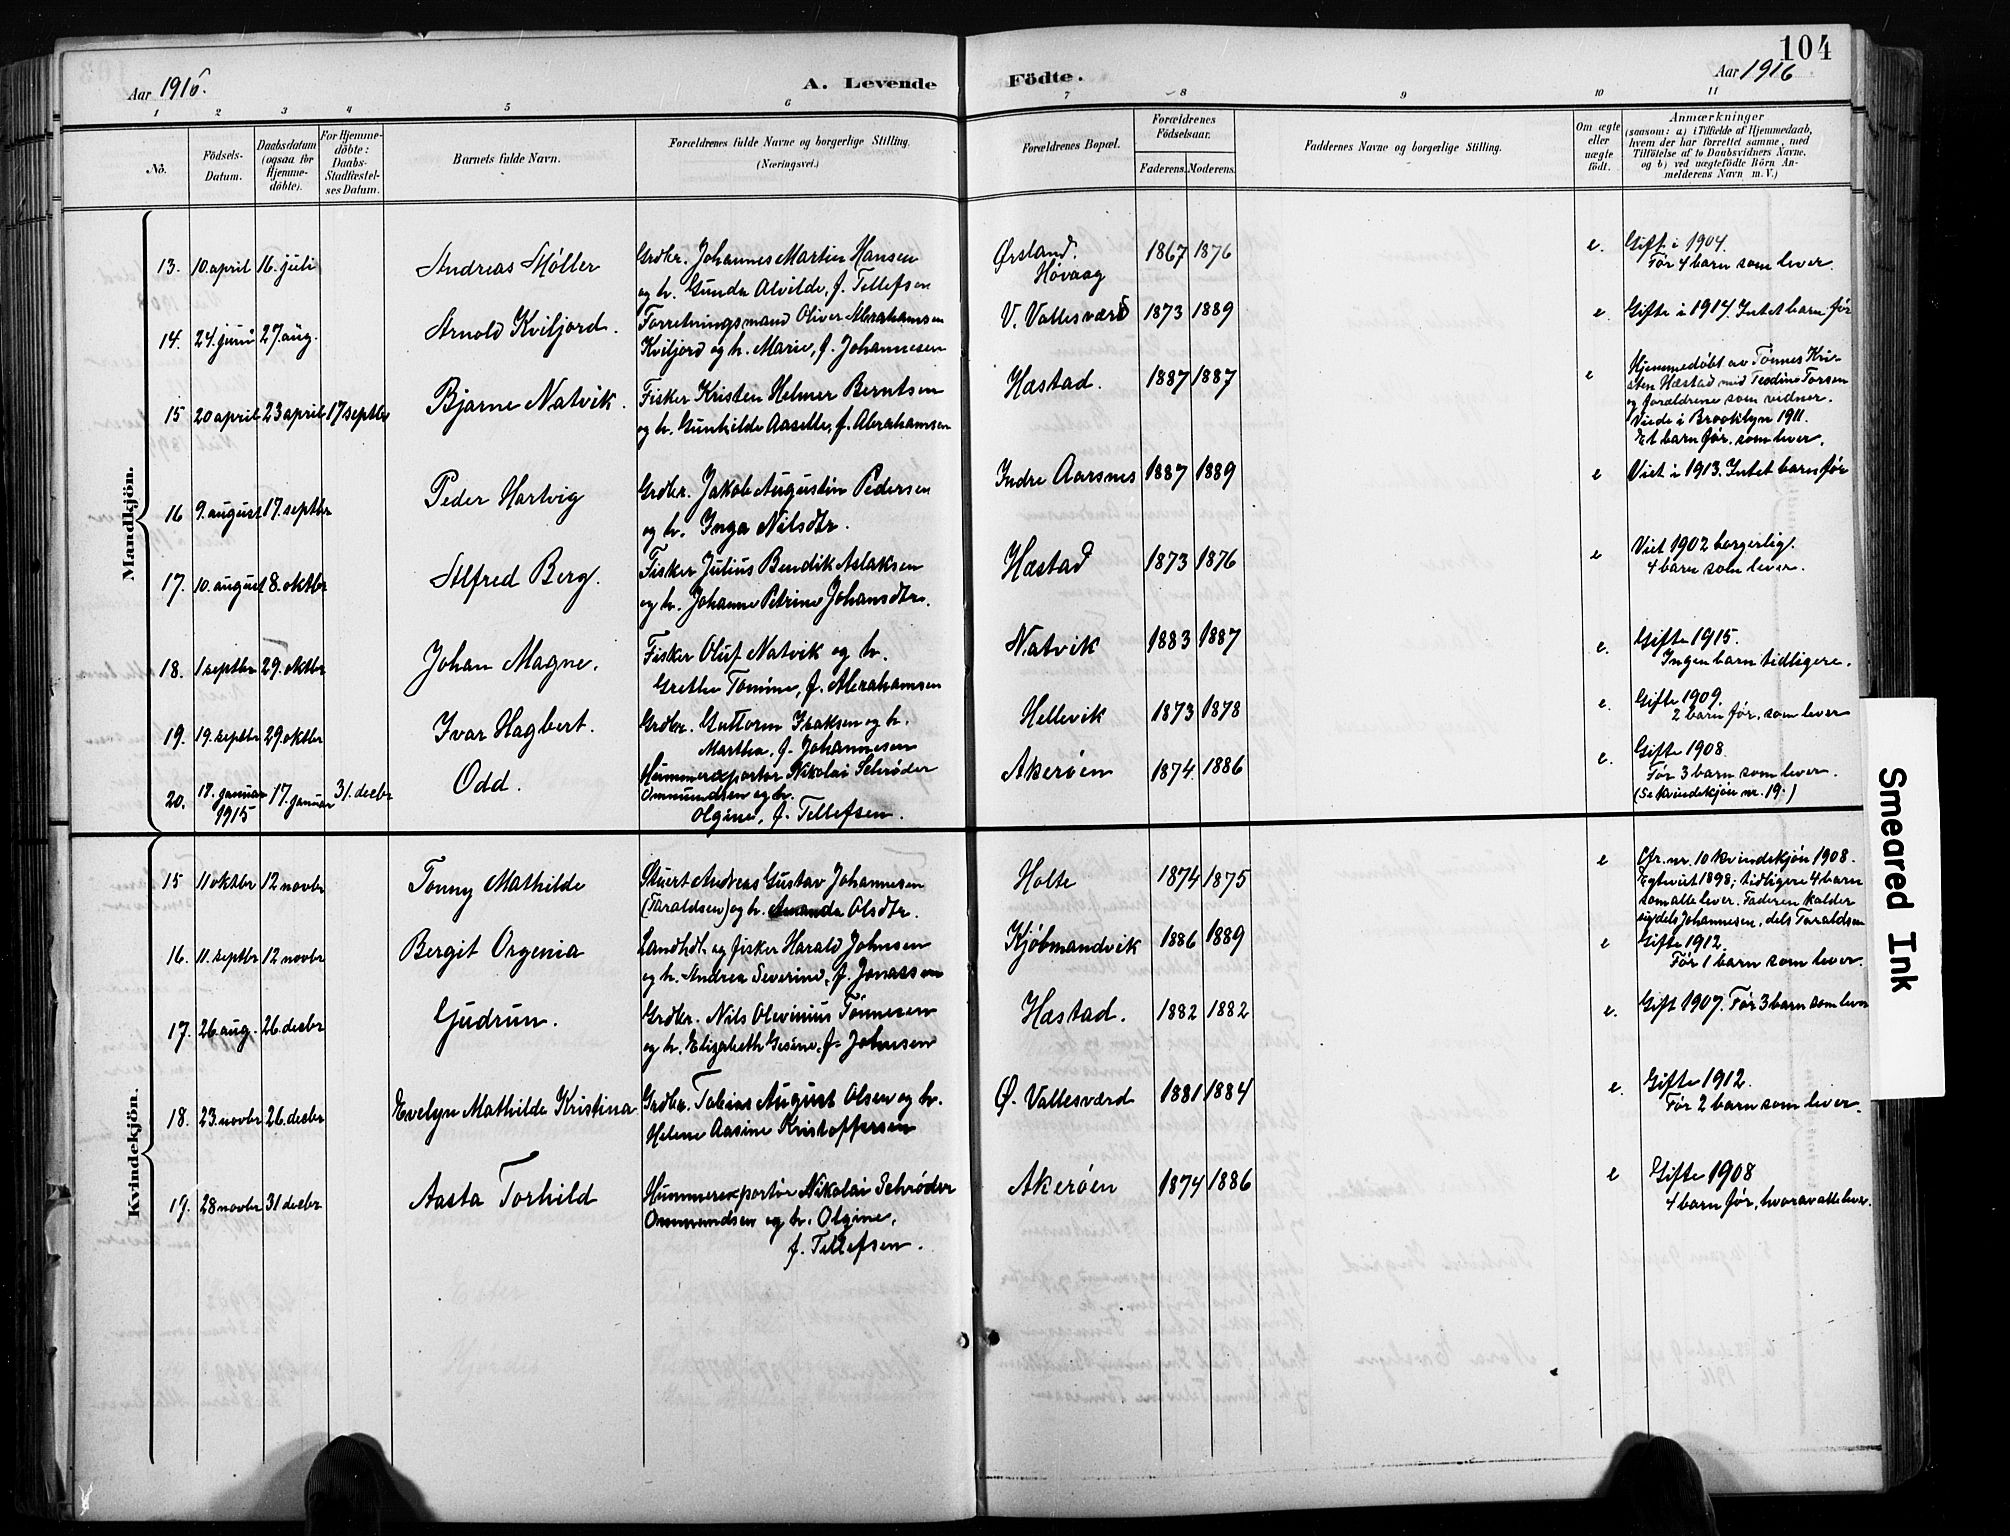 104
Aar 1916.
A. Levende
Födte.
Aar 1916
1 2 3 4 5 6 7 8 9 10 11
No.
Födsels-
Datum.
Daabsdatum
(ogsaa for
Hjemme-
döbte).
For Hjemme-
döbte:
Daabs-
Stadfæstel-
ses Datum.
Barnets fulde Navn.
Forældrenes fulde Navne og borgerlige Stilling.
(Næringsvei.)
Forældrenes Bopæl.
Forældrenes
Födselsaar.
Faderens. Moderens.
Faddernes Navne og borgerlige Stilling.
Om ægte
eller
uægte
födt.
Anmærkninger
(saasom: a) i Tilfælde af Hjemmedaab,
hvem der har forrettet samme, med
Tilföielse af to Daabsvidners Navne.
og b) ved uægtefödte Börn An-
melderens Navn m. V.)
Mandkjön.
13. 10. april 16. juli Andreas Møller Grdbr. Johannes Martin Hansen Ørsland. 1867 1876 e. Gift i 1904.
og h. Gunda Alvilde, f. Tellefsen Høvaag Før 4 barn som lever.
14. 24. juni 27. aug. Arnold Kviljord. Forretningsmand Oliver Abrahamsen V. Vallesværd 1873 1889 e. Gifte i 1914. Intet barn før
Kviljord og h. Marie, f. Johannesen
15 20 april 23 april 17 septbr Bjarne Natvik. Fisker Kristen Helmer Berntsen Hæstad. 1887 1887 e Hjemmedøbt av Tønnes Kri-
og h. Gunhilde Aasette, f. Abrahamsen sten Hæstad med Teodine Torsen
og forældrene som vidner.
Viede i Brooklyn 1911.
Et barn før, som lever.
16 9. august 17. septbr Peder Hartvig Grdbr. Jakob Augustin Pedersen Indre Aarsnes 1887 1889 e Viet i 1913. Intet barn før
og h. Inga Nilsdtr.
17. 10. august 8. oktbr Alfred Berg. Fisker Julius Bendik Aslaksen Hæstad 1873 1876 e Viet 1902 borgerlig.
og h. Johanne Petrine Johansdtr. 4 barn som lever.
18. 1 septbr 29. oktbr Johan Magne. Fisker Oluf Natvik og h. Natvik 1883 1887 e. Gifte 1915.
Grethe Tomine, f. Abrahamsen Ingen barn tidligere.
19. 19. septbr 29. oktbr Ivar Hagbert. Grdbr. Guttorm Isaksen og h. Hellevik 1873 1878 e. Gifte 1909.
Martha, f. Johannesen 2 barn før, som lever
20. 17. januar 1915 17. januar 31. decbr Odd. Hummerexportør Nikolai Schrøder Akerøen 1874. 1886 e. Gifte 1908.
Ommundsen og h. Før 3 barn som lever.
Olgine, f. Tellefsen. (Se kvindekjøn nr. 19.)
Kvindekjön.
15 11 oktbr 12 novbr Tonny Mathilde Stuert Andreas Gustav Johannesen Holte 1874 1875 e Cfr. nr. 10 kvindekjøn 1908.
(Taraldsen) og h. Amanda Olsdtr. Egteviet 1898; tidligere 4 barn
som alle lever. Faderen kalder
sig dels Johannesen, dels Taraldsen
16. 11. septbr 12 novbr Bergit Orgenia Landhdl. og fisker Harald Johnsen Kjøbmandvik 1886 1889 e Gifte 1912.
og h. Andrea Severine, f. Jonassen Før 1 barn som lever.
17. 26. aug. 26. decbr Gudrun. Grdbr. Nils Olevinius Tønnesen Hæstad. 1882 1882 e. Gift 1907. Før 3 barn som lever
og h. Elizabeth Gesine, f. Johnsen
18. 23. novbr 26. decbr Evelyn Mathilde Kristina Grdbr. Tobias August Olsen og h. Ø. Vallesværd 1881 1884 e. Gifte 1912.
Helene Aasine Kristoffersen Før 2 barn som lever.
19. 28 novbr 31 decbr Aasta Torhild Hummerexportør Nikolai Schrøder Akerøen 1874 1886 e Gifte 1908
Ommundsen og h. Olgine, 4 barn før, hvorav alle lever.
f. Tellefsen.
Smeared Ink